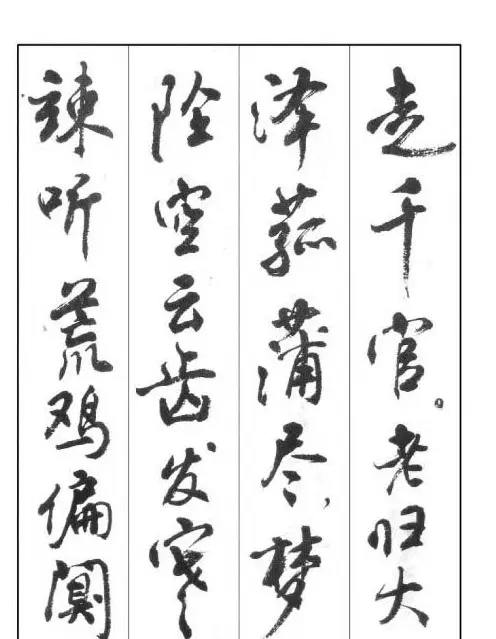 走千官。老归大
泽菰蒲尽、梦
坠空云齿发寒
竦听荒鸡偏阒